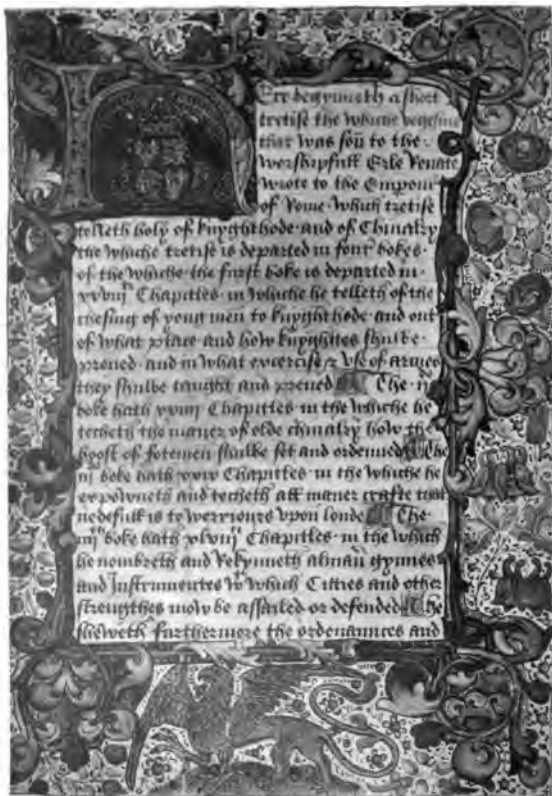 Ere begynneth a short
tretise the whiche vegesius
that was sou to the
worshipfull Erle Renate
wrote to the Emperour
of Rome · which tretise
telleth holy of knyghthode · and of Chiualry
the whiche tretise is departed in four bokes ·
of the whiche · the furst boke is departed in ·
xxviijti Chapitles · in whiche he telleth of the
chesing of yong men to knyghthode · and out
of what place · and how knyghttes shulbe ·
preued · and in what excercise & vse of armes
they shulbe taught and preued The · ijde
boke hath Chapitles · in the whiche he
techeth the maner of olde chiualry how the
hoost of fotemen shulbe set and ordenned The
iij boke hath Chapitles · in the whiche he
expowneth and techeth all maner crafte that
nedefull is to werriours vpon londe The ·
iiijth boke hath Chapitles · in the which
he nombreth and Rekynneth alman gynnes
and Instrumentes with which Citties and other
strengthes mow be assailed or defended He
sheweth furthermore the ordenannces and